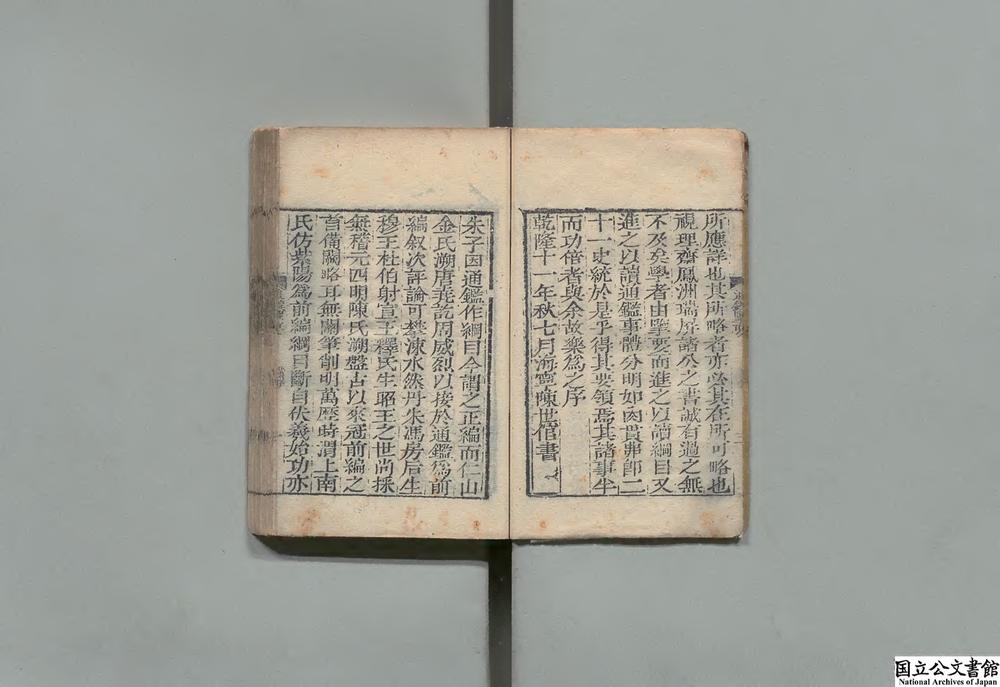 所應詳也其所略者亦必其在所可略也
視理齋鳳洲瑞屏諸公之書誠有過之無
不及矣學者由擥要而進之以讀綱目又
進之以讀通鑑事體分明如肉貫弗卽二
十一史統於是乎得其要領焉其諸事半
而功倍者與余故樂爲之序
乾隆十一年秋七月海寧陳世倌書
朱子因通鑑作綱目今謂之正編而仁山
金氏溯唐堯訖周威烈以接於通鑑爲前
編叙次評論可攀涑水然丹朱馮房后生
穆王杜伯射宣王釋氏生昭王之世尚採
無稽元四明陳氏溯盤古以來冠前編之
首備闕略耳無關筆削明萬歷時渭上南
氏仿紫陽爲前編綱目斷自伏羲始功亦
国立公文書館
National Archives of Japan